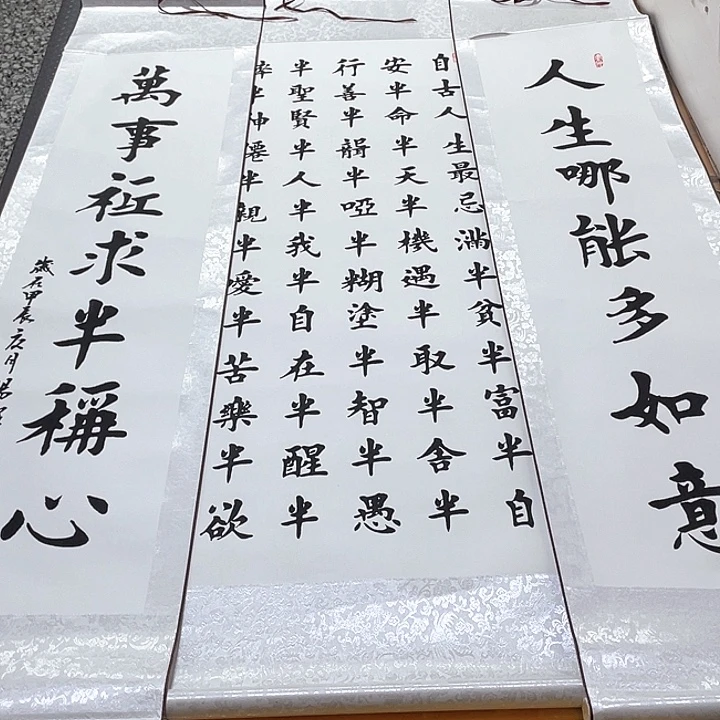 人生哪能多如意
自古人生最忌滿半貧半富半自
安半命半天半機遇半取半舍半
行善半半啞半糊塗半智半愚
半聖賢半人半我半自在半醒半
半神僊半親半愛半苦樂半欲
萬事祗求半稱心
歲在甲辰月